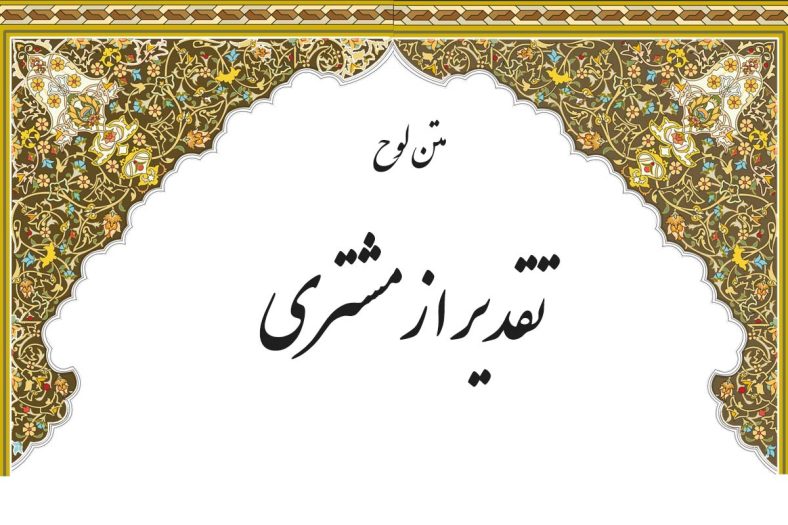 متن لوح
تقدیر از مشتری